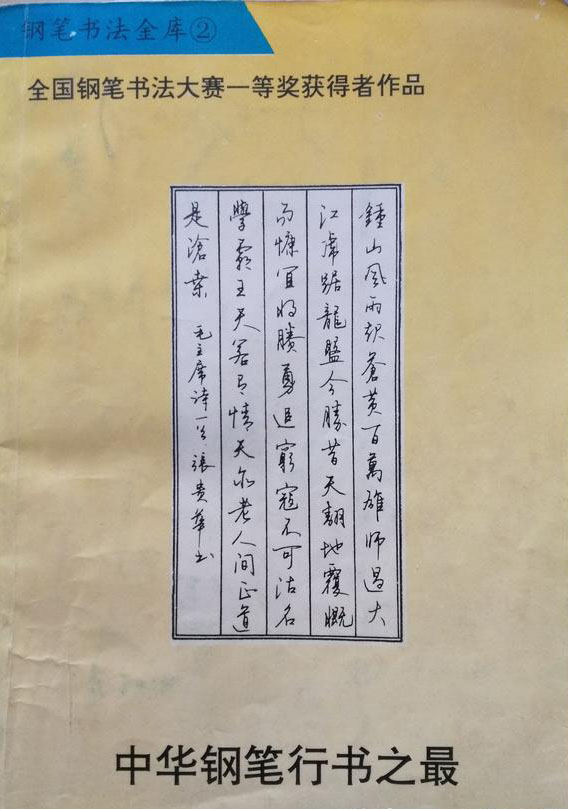 钢笔书法全库②
全国钢笔书法大赛一等奖获得者作品
鍾山風雨起蒼黄百萬雄師過大
江虎踞龍盤今勝昔天翻地覆慨
而慷宜將賸勇追窮寇不可沽名
學霸王天若有情天亦老人间正道
是滄桑 毛主席诗一首 張贵華书
中华钢笔行书之最